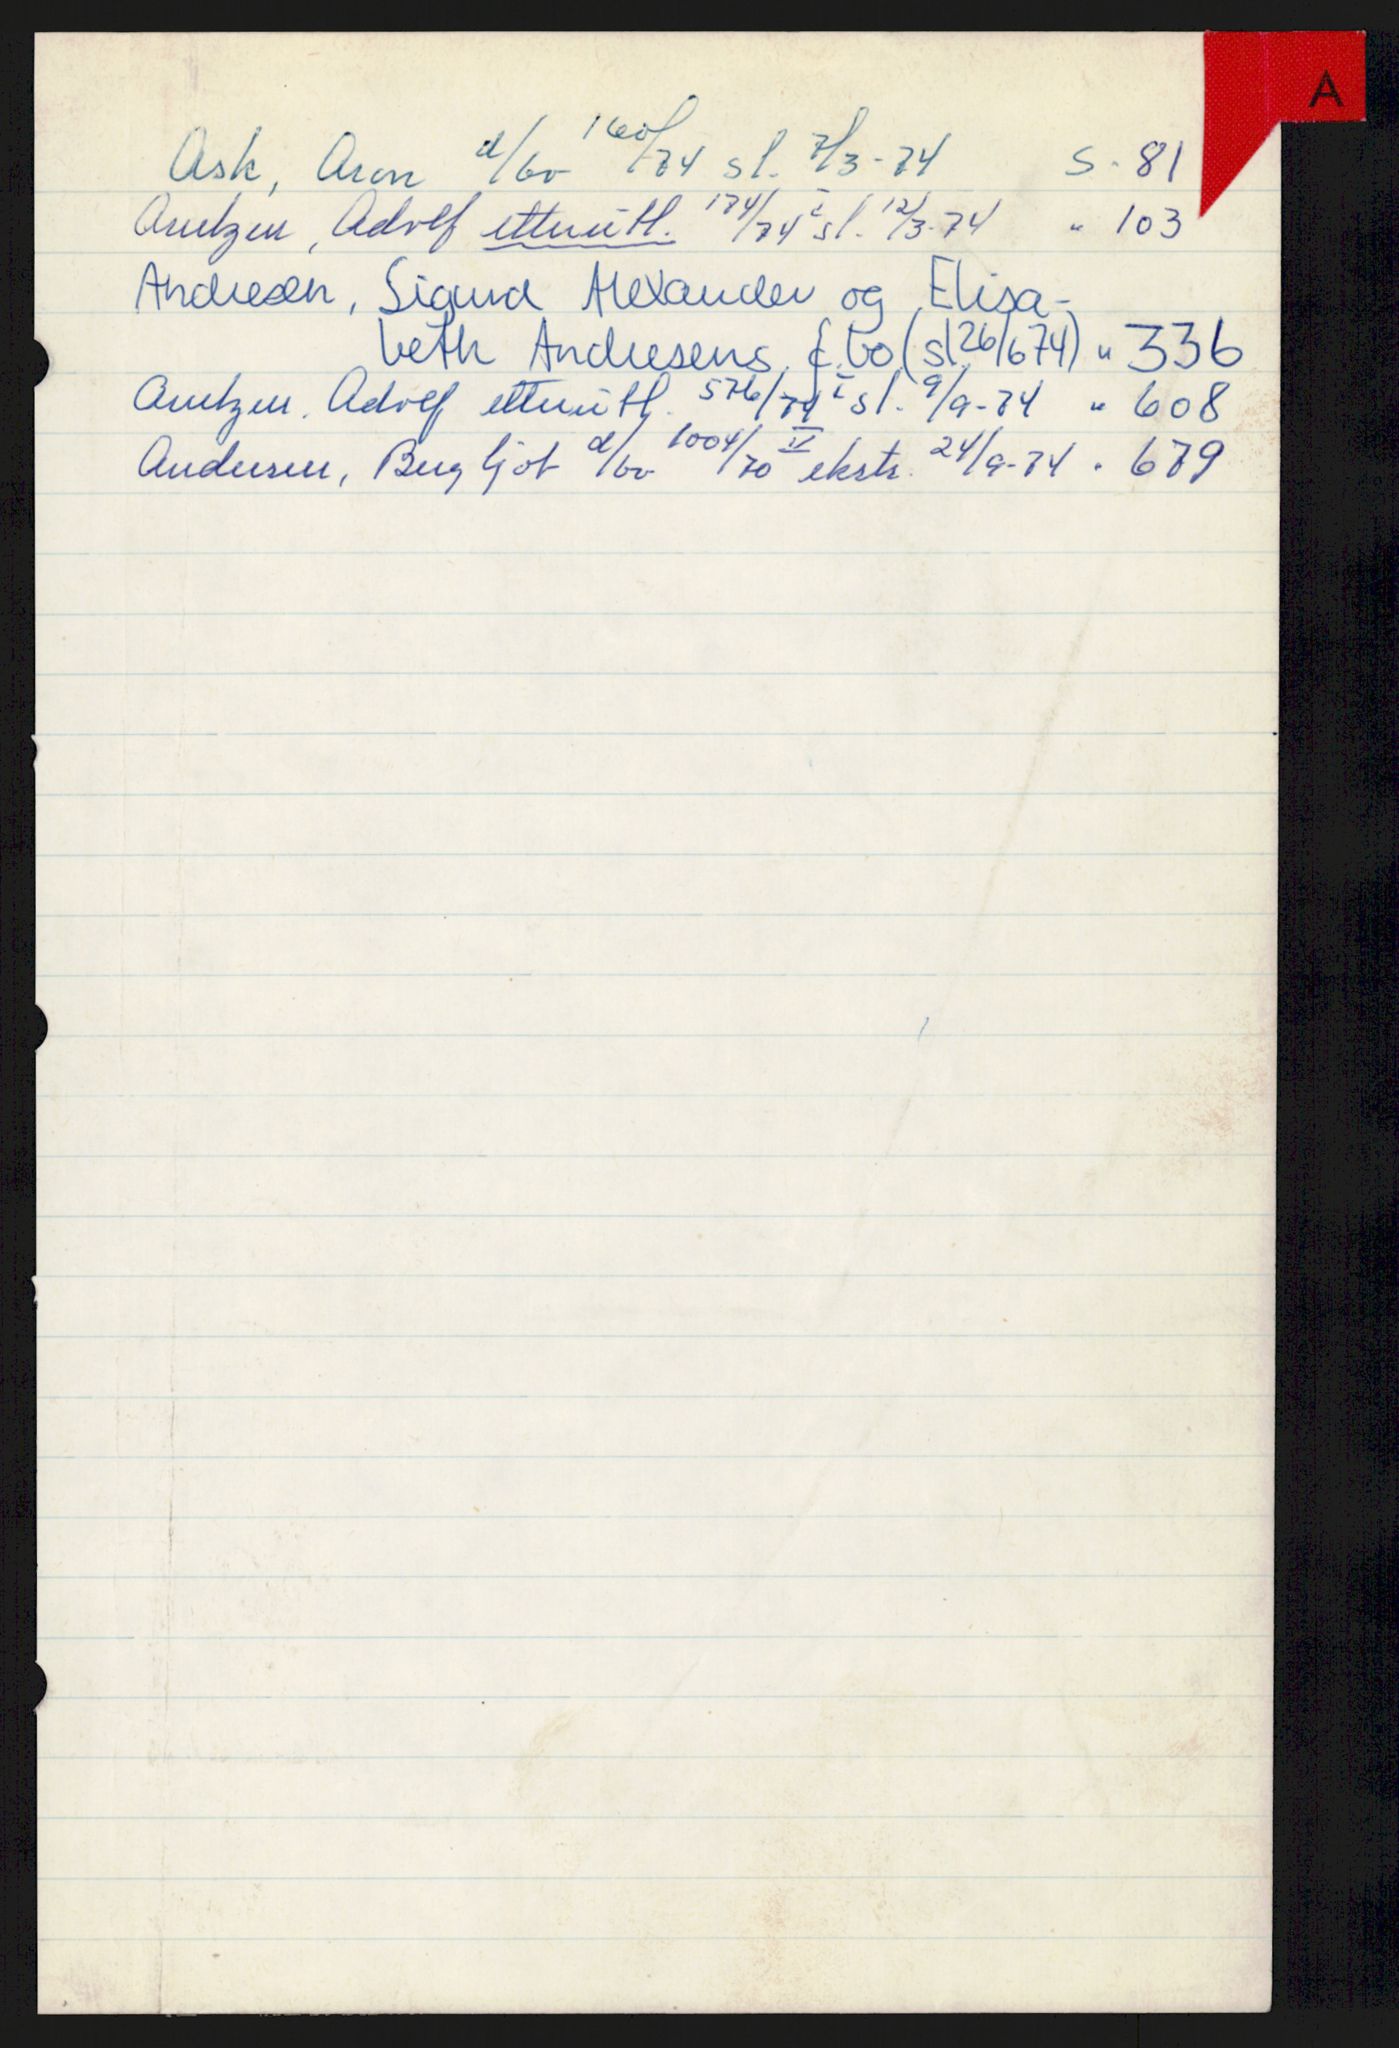 A
Ask, Aron d/bo 160/74 sl. 7/3-74 S. 81
Arntzen, Adolf etterutl. 174/74 I sl. 12/3-74 " 103
Andresen, Sigurd Alexander og Elisa-
beth Andresens f.bo (sl 26/6 74) " 336
Arntzen, Adolf etterutl. 576/74 I sl. 9/9-74 " 608
Andersen, Bergljot d/bo 1004/70 II ekstr. 24/9-74 " 679